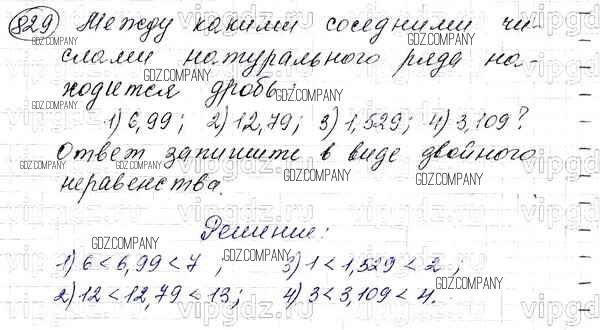 829) Между какими соседними чи-
слами натурального ряда на-
ходится дробь:
1) 6,99; 2) 12,79; 3) 1,529; 4) 3,109?
Ответ запишите в виде двойного
неравенства.
Решение:
1) 6 < 6,99 < 7 ; 3) 1 < 1,529 < 2 ;
2) 12 < 12,79 < 13; 4) 3 < 3,109 < 4.
GDZ.COMPANY
vipgdz.ru